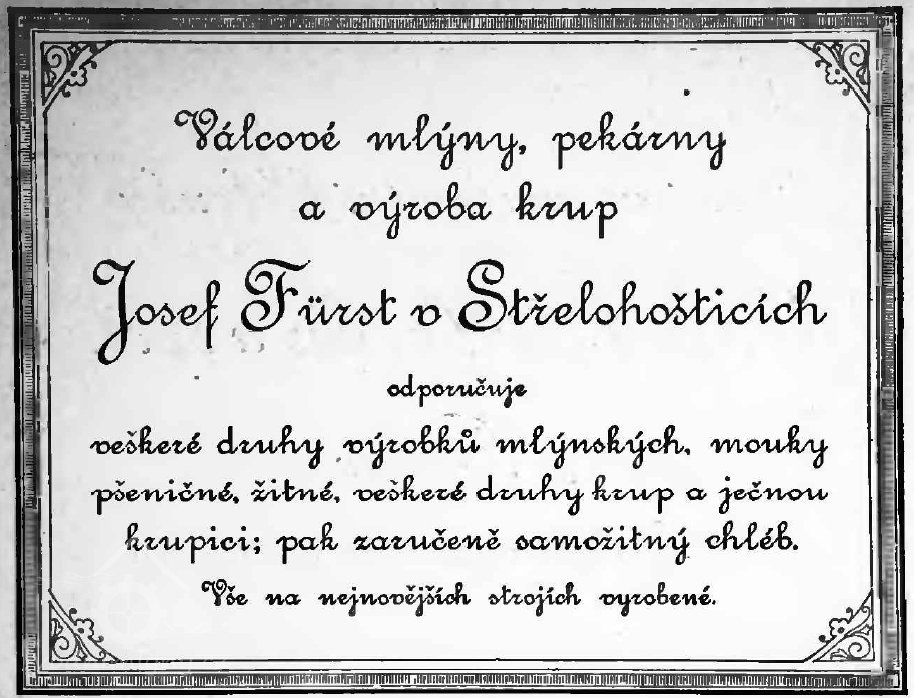 Válcové mlýny, pekárny
a výroba krup
Josef Fürst v Střelohošticích
odporučuje
veškeré druhy výrobků mlýnských, mouky
pšeničné, žitné, veškeré druhy krup a ječnou
krupici; pak zaručeně samožitný chléb.
Vše na nejnovějších strojích vyrobené.